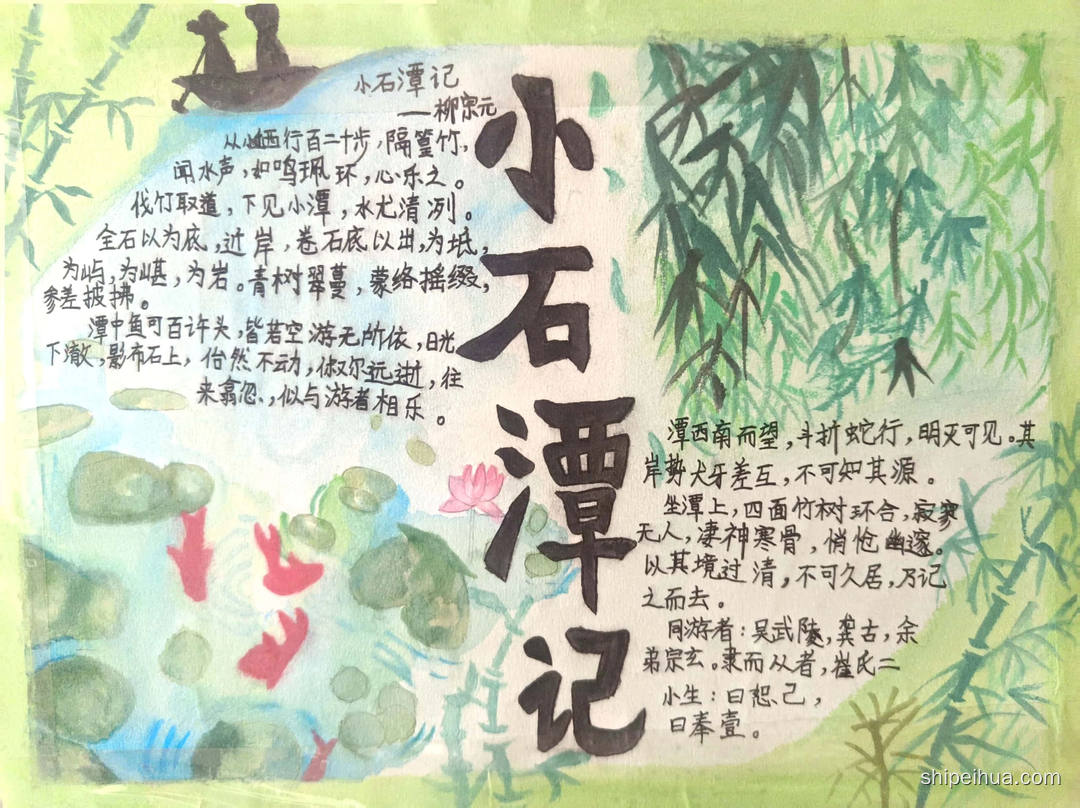 小石潭记
小石潭记
——柳宗元
从小丘西行百二十步,隔篁竹,
闻水声,如鸣珮环,心乐之。
伐竹取道,下见小潭,水尤清冽。
全石以为底,近岸,卷石底以出,为坻,
为屿,为嵁,为岩。青树翠蔓,蒙络摇缀,
参差披拂。
潭中鱼可百许头,皆若空游无所依,日光
下澈,影布石上,佁然不动,俶尔远逝,往
来翕忽,似与游者相乐。
潭西南而望,斗折蛇行,明灭可见。其
岸势犬牙差互,不可知其源。
坐潭上,四面竹树环合,寂寥
无人,凄神寒骨,悄怆幽邃。
以其境过清,不可久居,乃记
之而去。
同游者:吴武陵,龚古,余
弟宗玄。隶而从者,崔氏二
小生:曰恕己,
曰奉壹。
shipeihua.com